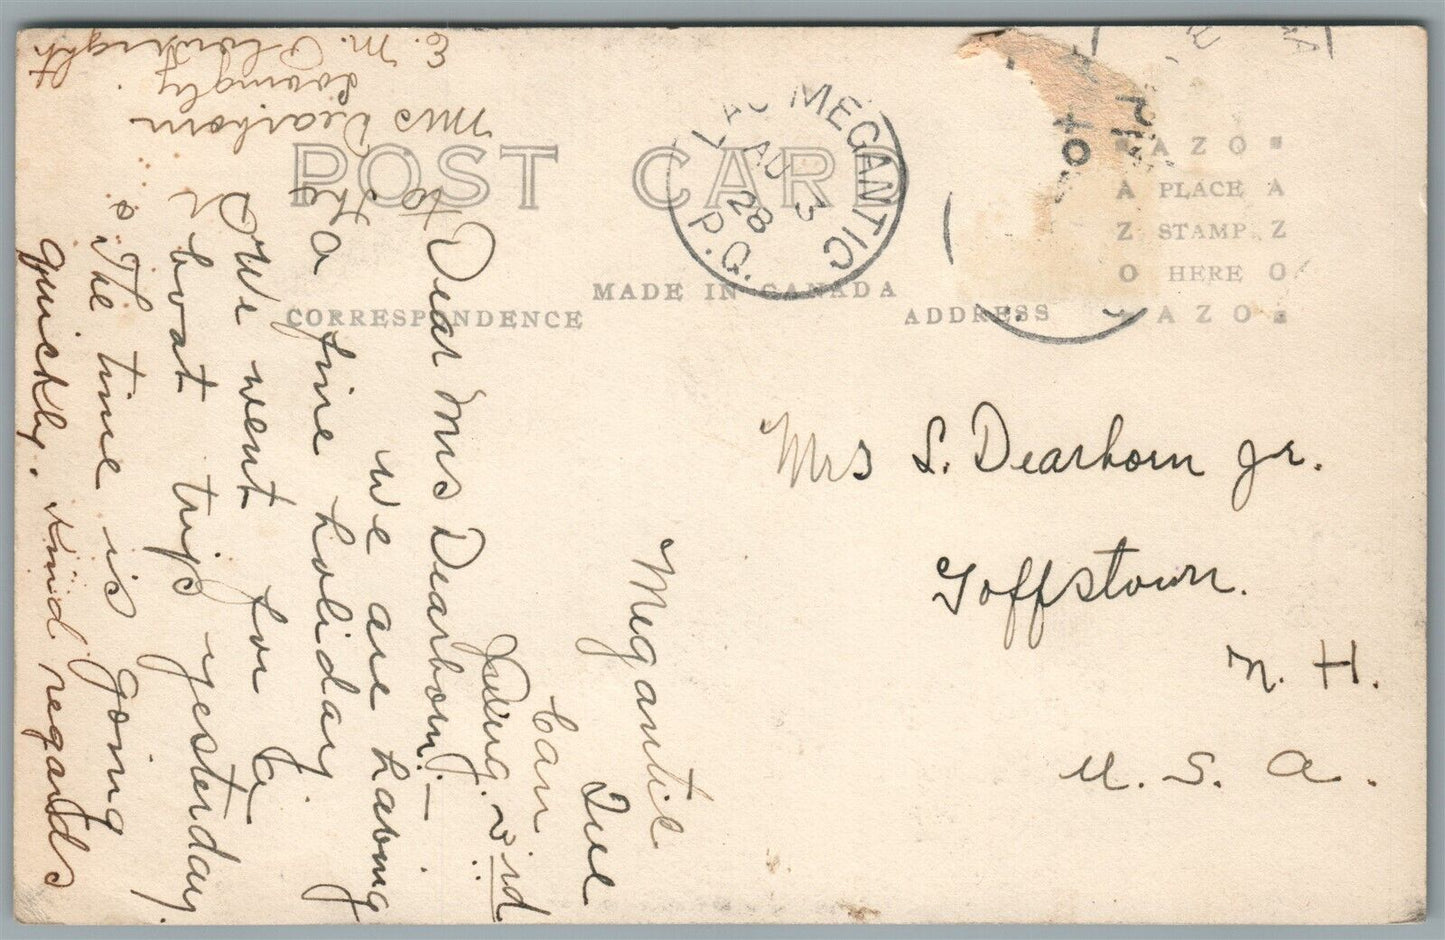 POST CARD
MADE IN CANADA
CORRESPONDENCE
ADDRESS
AZO
PLACE
STAMP
HERE
AZO
LAC MEGANTIC
AU 3
28
P.Q.
Mrs S. Dearborn Jr.
Goffstown.
N. H.
U. S. A.
Megantic
Que
Can
Aug. 3rd
Dear Mrs Dearborn:—
we are having
a fine holiday.
We went for a
boat trip yesterday.
The time is going
quickly. Kind regards
to
the
Dr
&
Mrs Dearborn
Lovingly
E. M.